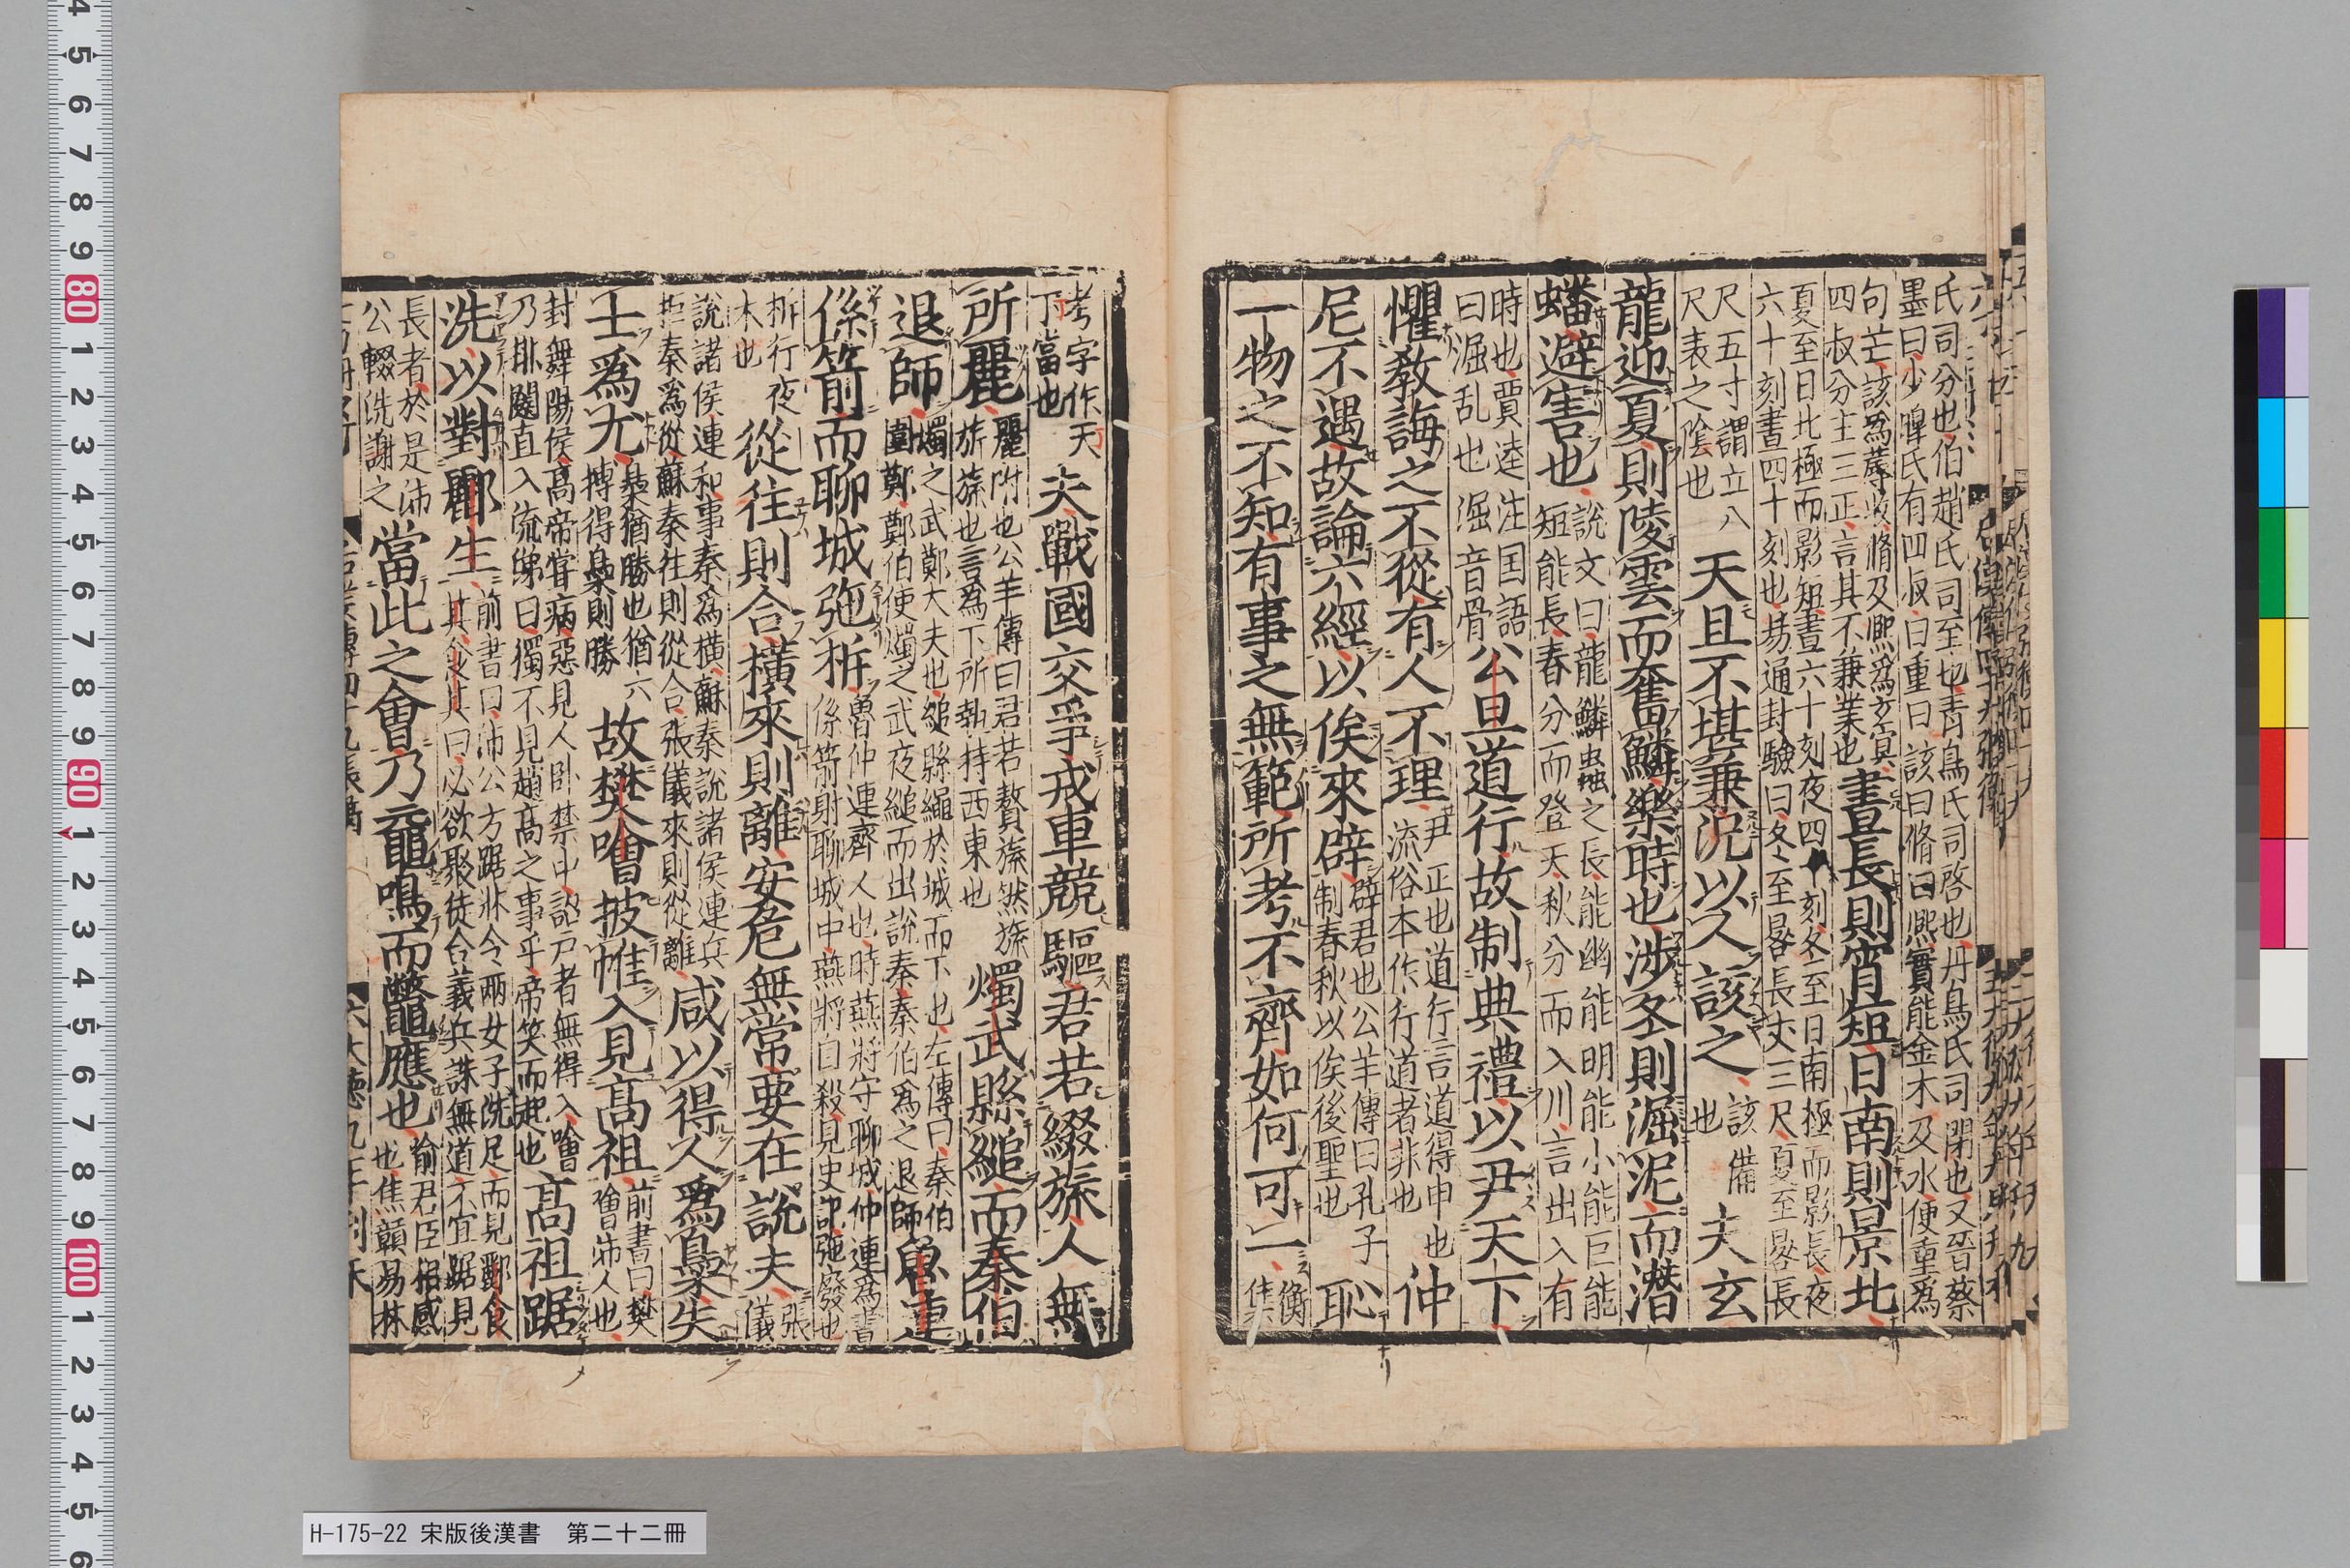 氏司分也伯趙氏司至也青鳥氏司啓也丹鳥氏司閉也又晉蔡
墨曰少皥氏有四叔曰重曰該曰脩曰熙實能金木及水使重爲
句芒該爲蓐收脩及熙爲玄冥
四叔分主三正言其不兼業也
晝長則宵短日南則景北
夏至日北極而影短晝六十刻夜四十刻冬至日南極而影長夜
六十刻晝四十刻也易通卦驗曰冬至晷長丈三尺夏至晷長
尺五寸謂立八
尺表之陰也
天且不堪兼況以人該之
該備
也
夫玄
龍迎夏則陵雲而奮鱗樂時也涉冬則淈泥而潛
蟠避害也
說文曰龍鱗蟲之長能幽能明能小能巨能
短能長春分而登天秋分而入川言出入有
時也賈逵注国語
曰淈乱也淈音骨
公旦道行故制典禮以尹天下
懼教誨之不從有人不理
尹正也道行言道得申也
流俗本作行道者非也
仲
尼不遇故論六經以俟來辟
辟君也公羊傳曰孔子
制春秋以俟後聖也
恥
一物之不知有事之無範所考不齊如何可一
衡
集
考字作天
丁當也
夫戰國交爭戎車競驅君若綴旒人無
所麗
麗附也公羊傳曰君若贅旒然旒
旂旒也言為下所執持西東也
燭武縣縋而秦伯
退師
燭之武鄭大夫也縋縣繩於城而下也左傳曰秦伯
圍鄭鄭伯使燭之武夜縋而出說秦秦伯爲之退師
魯連
係箭而聊城弛柝
魯仲連齊人也時燕將守聊城仲連爲書
係箭射聊城中燕將自殺見史記弛廢也
柝行夜
木也
從往則合橫來則離安危無常要在說夫
張
儀
說諸侯連和事秦爲橫蘇秦說諸侯連兵
拒秦爲從蘇秦往則從合張儀來則從離
咸以得人爲梟失
士爲尤
梟猶勝也猶六
博得梟則勝
故樊噲披帷入見高祖
前書曰樊
噲沛人也
封舞陽侯高帝甞病惡見人卧禁中詔戶者無得入噲
乃排闥直入流涕曰獨不見趙高之事乎帝笑而起也
高祖踞
洗以對酈生
前書曰沛公方踞牀令兩女子洗足而見酈食
其食其曰必欲聚徒合義兵誅無道不宜踞見
長者於是沛
公輟洗謝之
當此之會乃黿鳴而鼈應也
喻君臣相感
也焦贛易林